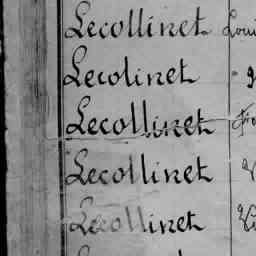 Lecollinet Loui
Lecolinet
Lecollinet
Lecollinet
Lecollinet